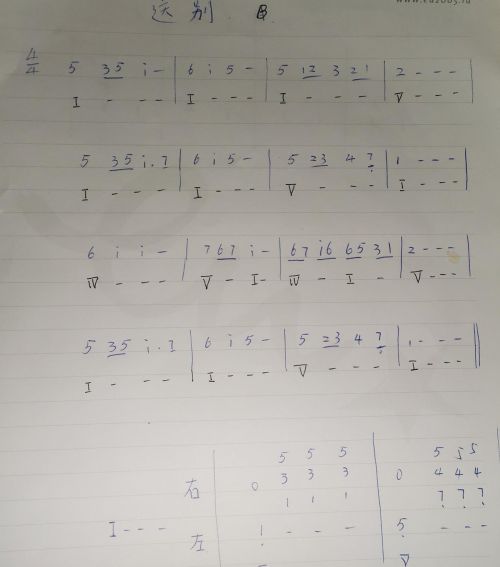 送别. B.
4/4 5 35 i - | 6 i 5 - | 5 12 3 21 | 2 - - -
I - - - | I - - - | I - - - | V - - -
5 35 i. 7 | 6 i 5 - | 5 23 4 7 | 1 - - -
I - - - | I - - - | V - - - | I - - -
6 i i - | 7 67 i - | 67 i6 65 31 | 2 - - -
IV - - - | V - I - | IV - I - | V - - -
5 35 i. 7 | 6 i 5 - | 5 23 4 7 | 1 - - -
I - - - | I - - - | V - - - | I - - -
5 5 5 | 5 5 5
右 0 3 3 3 | 0 4 4 4
1 1 1 | 7 7 7
I - - - 左 1 - - - | 5 - - -
V